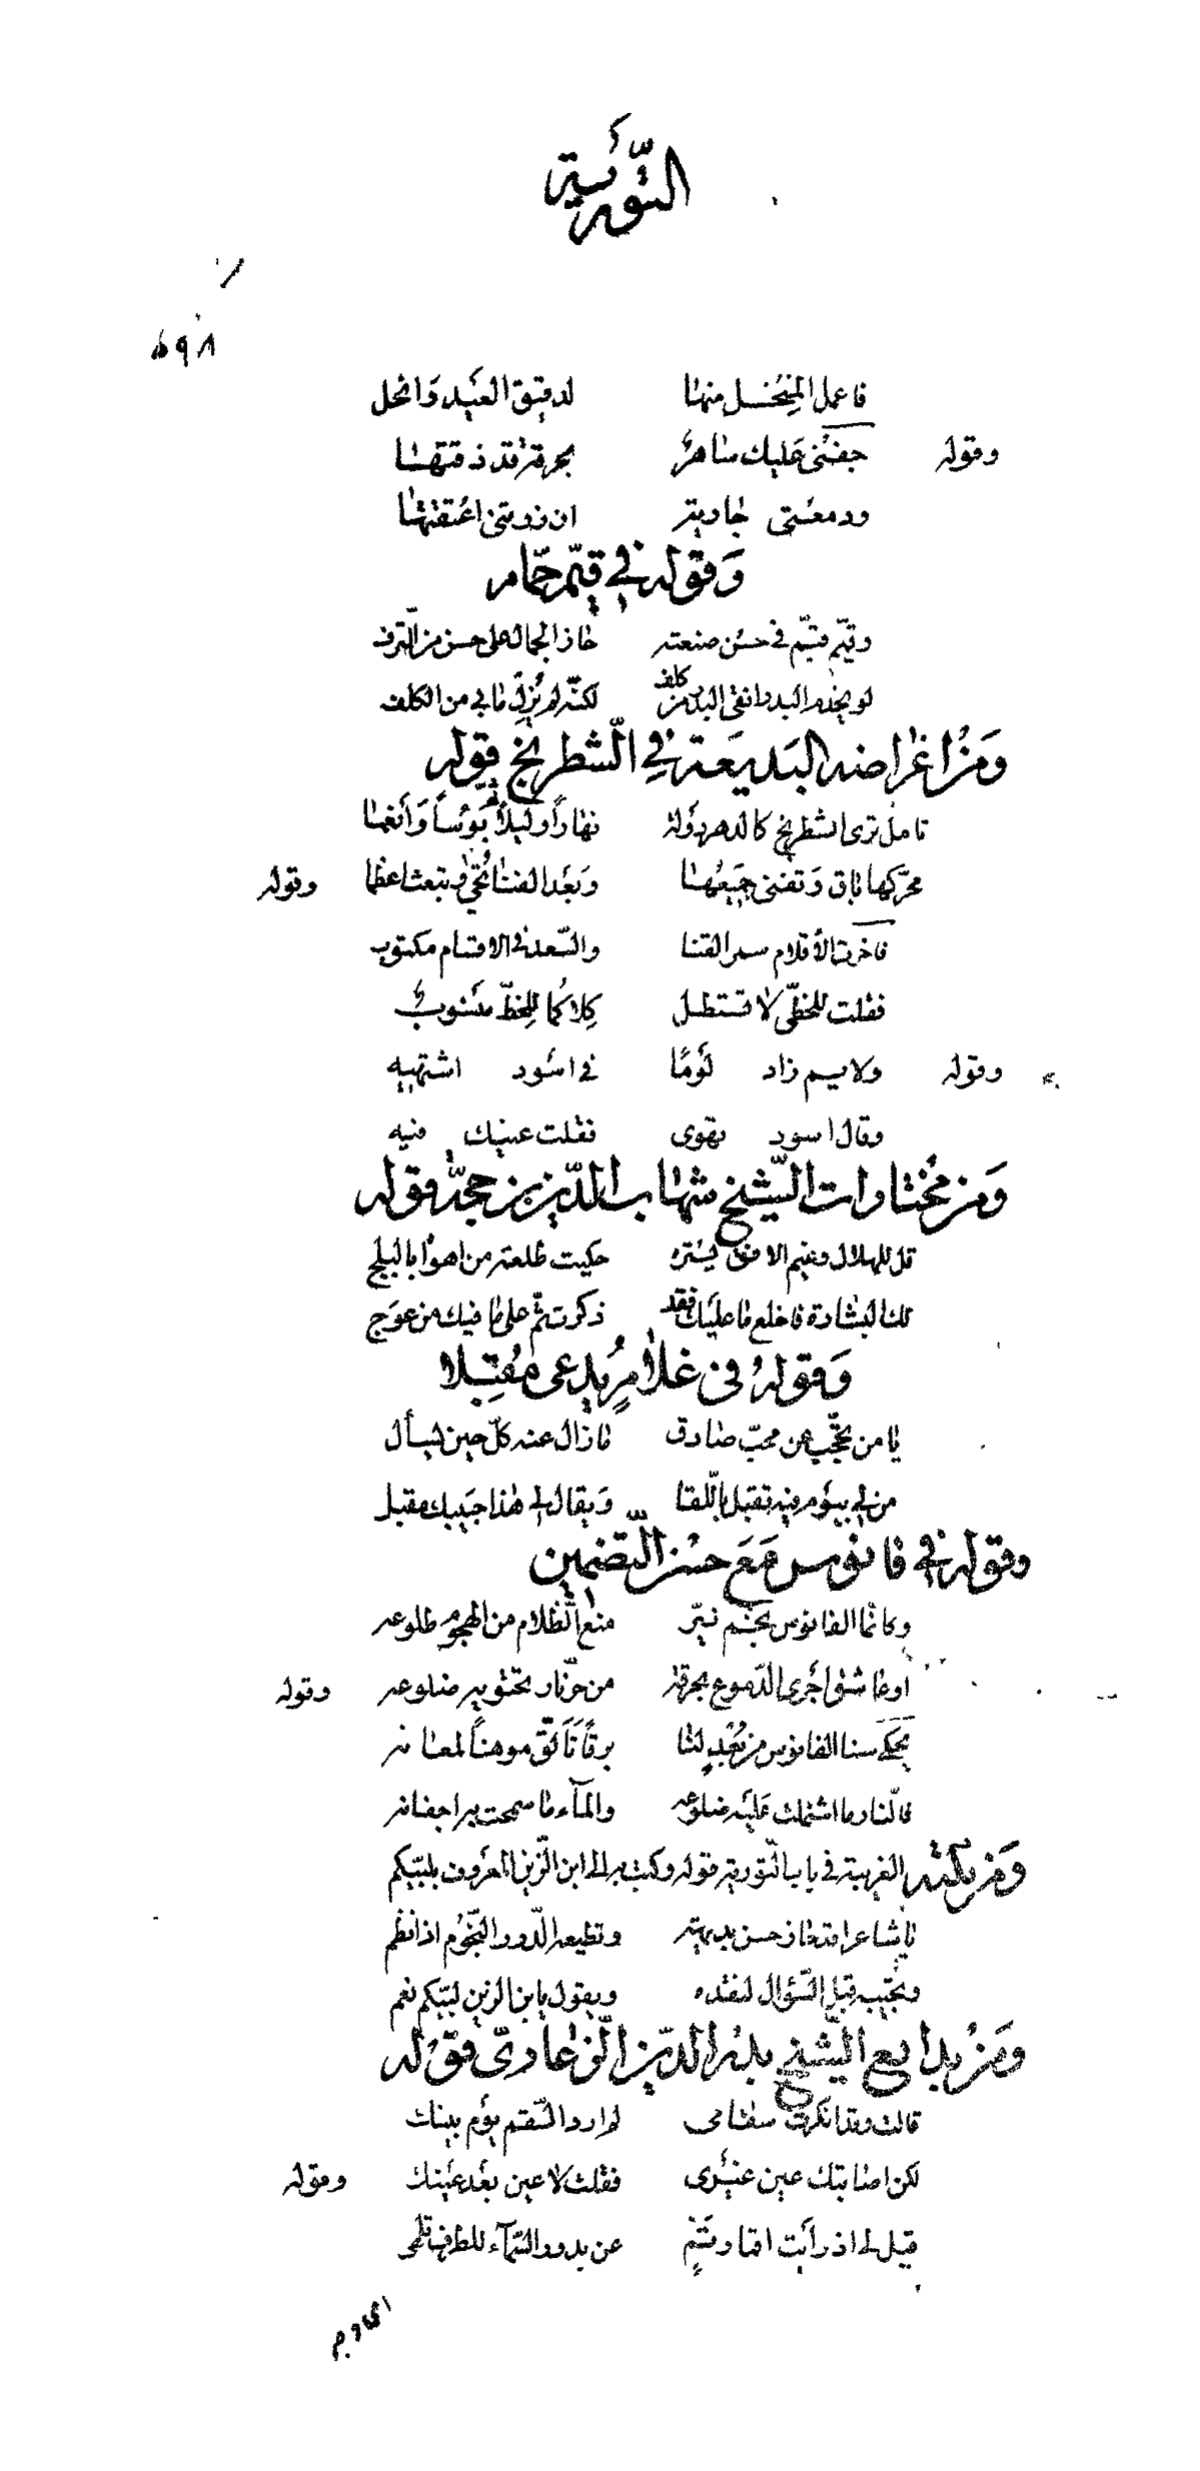 التورية
٥٩٨
فاعمل المنخل منها لدقيق العيد وانحل
وقوله جفني عليك ساهر بحرقة قد ذقتها
ودمعتي جارية ان زرتني اعتقتها
وقوله في قيم حمام
وقيم قيم في حسن صنعته حاز الجمال على حسن من الترف
لو يخدم البدر انقى البدر من كلف لكنه لم يزل ما بي من الكلف
ومن اغراضه البديعة في الشطرنج قوله
تامل ترى الشطرنج كالدهر دولة نهاراً وليلاً بؤساً وأنعما
محركها باق وتفنى جميعها وبعد الفنا تحيى وتبعث اعظما وقوله
فاخرت الأقلام سمر القنا والسعد في الاقسام مكتوب
فقلت للخطي لا تستطل كلاكما للخط منسوب
وقوله ولايم زاد لوما في اسود اشتهيه
وقال اسود تهوى فقلت عينك فيه
ومن مختارات الشيخ شهاب الدين بن حجر قوله
قل للهلال وغيم الافق يستره حكيت طلعة من اهواه بالبلج
لك البشارة فاخلع ما عليك فقد ذكرت ثم على ما فيك من عوج
وقوله في غلام يدعى مقبلا
يا من تحجب عن محب صادق ما زال عنه كل حين يسأل
من لي بيوم فيه تقبل باللقا ويقال لي هذا حبيبك مقبل
وقوله في فانوس مع حسن التضمين
وكانما الفانوس نجم نير منع الظلام من الهجوم طلوعه
اوعاشق اجرى الدموع بحرقة من حر نار تحتويه ضلوعه وقوله
يحكي سنا الفانوس من بعد لنا برقاً تألق موهناً لمعانه
فالنار ما اشتملت عليه ضلوعه والمآء ما سمحت به اجفانه
ومن نكته الغريبة في باب التورية قوله وكتب به الى ابن الزين المعروف بلبيكم
يا شاعرا قد حاز حسن بديهة وتطيعه الدرر النجوم اذا نظم
ويجيب قبل السؤال لنقده ويقول يا ابن الزين لبيكم نعم
ومن بدايع الشيخ بدر الدين الزغارى قوله
قالت وقد انكرت سقامى لم ار ذا السقم يوم بينك
لكن اصابتك عين غيرى فقلت لا عين بعد عينك وقوله
قيل لي اذ رأيت اقمار تم عن بدور السمآء للطرف تلهى